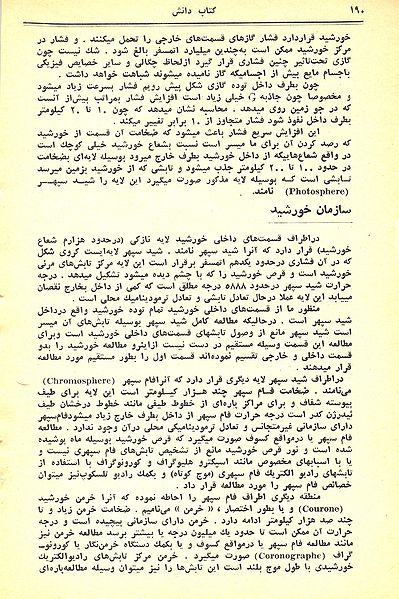 ۱۹۰ کتاب دانش
خورشید قراردارد فشار گازهای قسمت‌های خارجی را تحمل میکنند . و فشار در
مرکز خورشید ممکن است به‌چندین میلیارد اتمسفر بالغ شود . شك نیست چون
گازی تحت‌تأثیر چنین فشاری قرار گیرد ازلحاظ چگالی و سایر خصایص فیزیکی
باجسام مایع بیش از اجسامیکه گاز نامیده میشوند شباهت خواهد داشت .
چون بطرف داخل توده گازی شکل پیش رویم فشار بسرعت زیاد میشود
و مخصوصاً چون جاذبه خیلی زیاد است افزایش فشار بمراتب بیش‌از آنست
که در جو زمین روی میدهد . محاسبه نشان میدهد که چون ۱۰ تا ۲۰ کیلومتر
بطرف داخل نفوذ شود فشار متجاوز از ۱۰ برابر تغییر میکند .
این افزایش سریع فشار باعث میشود که ضخامت آن قسمت از خورشید
که رصد کردن آن برای ما میسر است نسبت بشعاع خورشید خیلی کوچك است
در واقع شعاع‌هاییکه از داخل خورشید بطرف خارج میرود بوسیله لایه‌ای بضخامت
در حدود ۱۰۰ تا ۲۰۰ کیلومتر جذب میشود و تابشی که از خورشید بزمین میرسد
تابشی است که بوسیله لایه مذکور صورت میگیرد این لایه را شید سپهر
(Photosphere) نامند .
سازمان خورشید
دراطراف قسمت‌های داخلی خورشید لایه نازکی (درحدود هزارم شعاع
خورشید) قرار دارد که آنرا شید سپهر نامند . شید سپهر لایه‌ایست کروی شکل
که در آن فشاری درحدود یکدهم اتمسفر برقرار است این لایه مرکز تابش‌های مرئی
خورشید است و قرص خورشید را که با چشم دیده میشود تشکیل میدهد . درجه
حرارت شید سپهر درحدود ۵۸۸۸ درجه مطلق است که کمی از داخل بخارج نقصان
مییابد این لایه عملا درحال تعادل تابشی و تعادل ترمودینامیك محلی است .
منظور ما از قسمت‌های داخلی خورشید تمام توده خورشید واقع درداخل
شید سپهر است . درحالیکه مطالعه کامل شید سپهر بوسیله تابش‌های آن میسر
است شید سپهر مانع از وصول تابشهای قسمت‌های داخلی خورشید است وبرای
مطالعه این قسمت وسیله مستقیم در دست نیست ازاینرو مطالعه خورشید را بدو
قسمت داخلی و خارجی تقسیم نموده‌اند قسمت اول را بطور مستقیم مورد مطالعه
قرار میدهند .
دراطراف شید سپهر لایه دیگری قرار دارد که آنرافام سپهر (Chromosphere)
می‌نامند . ضخامت فـام سپهر چند هـزار کیـلومتر است این لایه برای طیف
پیوسته شفاف و برای مراکز پاره‌ای از خطوط طیفی مانند خطوط درخشان طیف
ئیدرژن کدر است درجه حرارت فام سپهر از داخل بطرف خارج زیاد میشودفام‌سپهر
دارای سازمانی غیرمتجانس و تعادل ترمودینامیکی محلی درآن وجود ندارد . مطالعه
فام سپهر یا درمواقع کسوف صورت میگیرد که قرص خورشید بوسیله ماه پوشیده
شده است و نور قرص خورشید مانع از تشخیص تابش‌های فام سپهری نیست و
یا با اسبابهای مخصوص مانند اسپکترو هلیوگراف و کورونوگراف یا استفاده از
تابشهای رادیو الکتریك فام سپهری (موج کوتاه) و بکمك رادیو تلسکوپ‌نیز میتوان
خصائص فام سپهر را مورد مطالعه قرار داد .
منطقه دیگری اطراف فام سپهر را احاطه نموده که آنرا خرمن خورشید
(Couronne) و یا بطور اختصار ، « خرمن » می‌نامیم . ضخامت خرمن زیاد و تا
چند صد هزار کیلومتر ادامه دارد . خرمن دارای سازمانی پیچیده است و درجه
حرارت آن ممکن است تا حدود یك میلیون درجه یا بیشتر برسد مطالعه خرمن نیز
مانند مطالعه فام سپهر یا درمواقع کسوف و یا بکمك دستگاه خرمن‌نگار یا کورونو-
گراف (Coronographe) صورت میگیرد . خرمن مرکز تابش‌های رادیوالکتریك
خورشیدی با طول موج بلند است این تابش‌ها را نیز میتوان وسیله مطالعه‌پاره‌ای